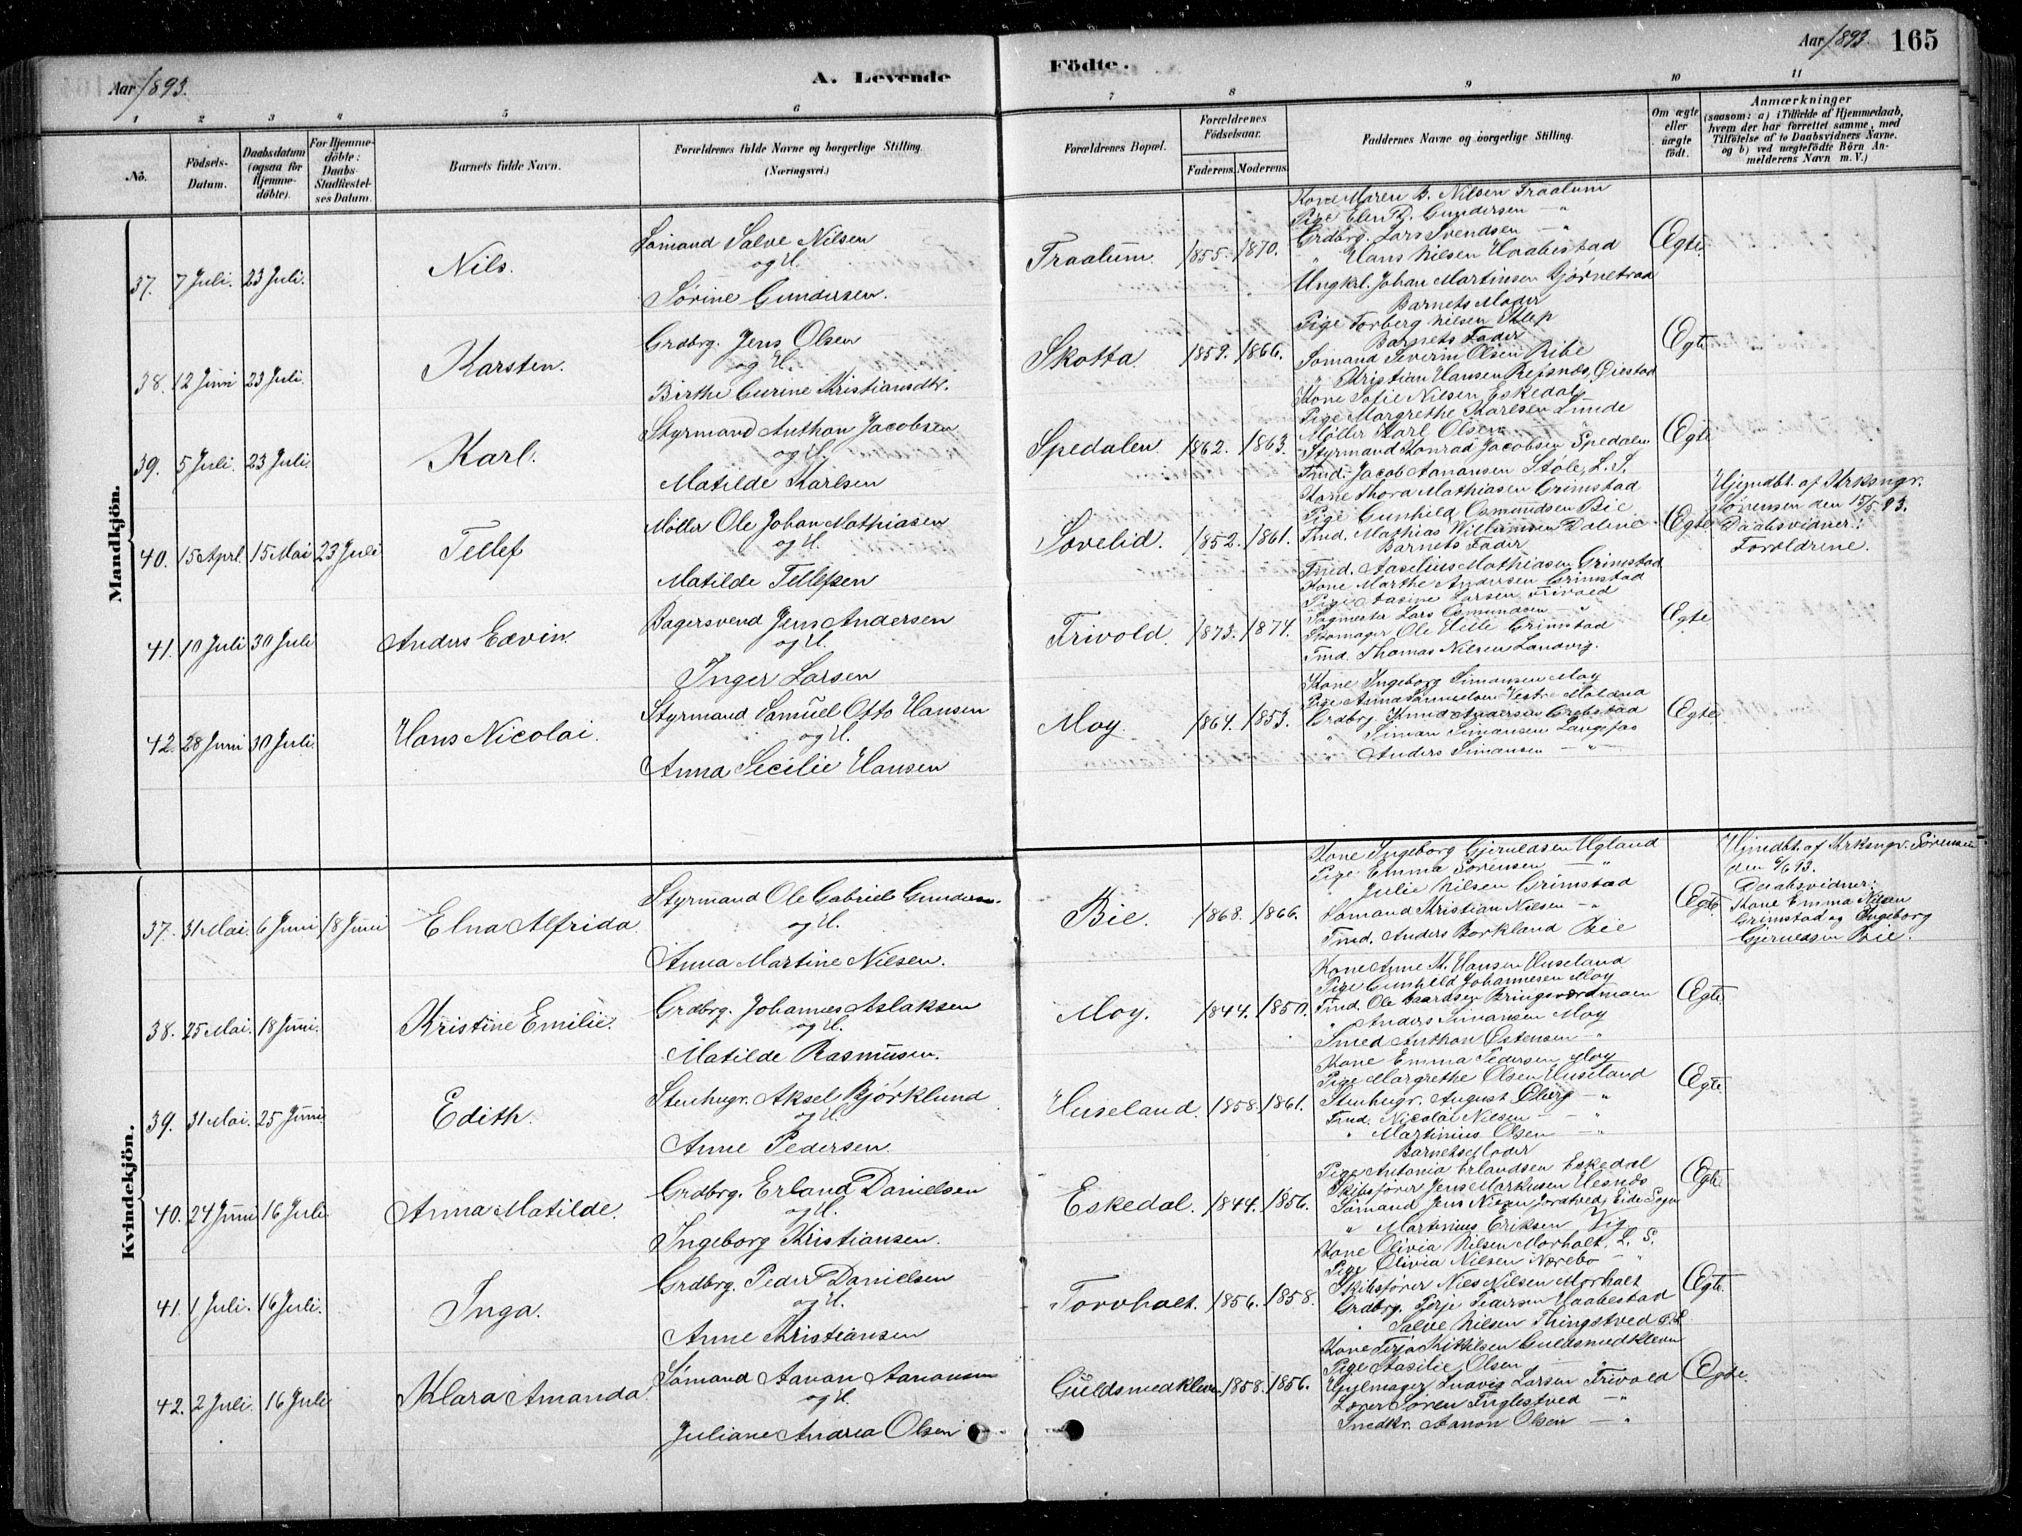 Aar 1893.
A. Levende
Födte.
Aar 1893. 165
1 2 3 4 5 6 7 8 9 10 11
No.
Födsels-Datum.
Daabsdatum (ogsaa for Hjemmedöbte).
For Hjemmedöbte: Daabs-Stadfæstelses Datum.
Barnets fulde Navn.
Forældrenes fulde Navne og borgerlige Stilling.
(Næringsvei.)
Forældrenes Bopæl.
Forældrenes Födselsaar.
Faderens. Moderens.
Faddernes Navne og borgerlige Stilling.
Om ægte eller uægte födt.
Anmærkninger
(saasom: a) i Tilfælde af Hjemmedaab, hvem der har forrettet samme, med Tilföielse af to Daabsvidners Navne. og b) ved uægtefödte Börn Anmelderens Navn m. V.)
Mandkjön.
37. 7 Juli. 23 Juli. Nils.
Sömand Salve Nilsen
og H.
Sørine Gundersen.
Traalum. 1855. 1870.
Kone Maren B. Nilsen Traalum
Pige Elen R. Gundersen — "
Grdbrg. Lars Svendsen — "
" Hans Nilsen Haabestad
Ungkrl. Johan Martinsen Bjørnetrad
Ægte.
38. 12 Juni 23 Juli. Karsten.
Grdbrg. Jens Olsen
og H.
Birthe Gurine Kristiansdt.
Skotta. 1859. 1866.
Barnets Moder
Pige Torberg Nilsen Klep
Barnets Fader
Sömand Severin Olsen Ribe
" Kristian Hansen Rejsnæs, Øiestad
Ægte
39. 5 Juli. 23 Juli. Karl.
Styrmand Anthon Jacobsen
og H.
Matilde Karlsen
Spedalen 1862. 1863.
Kone Sofie Nilsen Eskedal
Pige Margrethe Karlsen Lunde
Møller Karl Olsen
Styrmand Konrad Jacobsen Spedalen
Tmd. Jacob Aanonsen Støle, L. S.
Ægte
40. 15 Aprl. 15 Mai 23 Juli Tellef
Møller Ole Johan Mathiasen
og H.
Matilde Tellefsen
Sovelid. 1852. 1861.
Kone Thora Mathiasen Grimstad
Pige Gunhild Osmundsen Bie
Tmd. Mathias Vilhumsen Dalene
Barnets Fader
Tmd. Aaselius Mathiasen Grimstad
Ægte
Hjemdbt. af Krksngr. Sørensen den 15/5 93.
Daabsvidner:
Forældrene.
41. 10 Juli 30 Juli Anders Edvin
Bagersvend Jens Andersen
og H.
Inger Larsen
Frivold. 1873. 1874.
Kone Marthe Andersen Grimstad
Pige Aasine Larsen Frivold
Sagmester Lars Osmundsen — "
Skomager Ole Eide Grimstad
Tmd. Thomas Nilsen Landvig.
Ægte
42. 28 Juni 30 Juli. Hans Nicolai.
Styrmand Samuel Otto Hansen
og H.
Anna Secilie Hansen
Moy. 1864. 1853.
Kone Ingeborg Simonsen Moy
Pige Asine Samuelsen Vestre Moldrea
Grdbrg. Knud Andersen Grefstad
" Simon Simonsen Langefos
" Anders Simonsen — " —
Ægte
Kvindekjön.
37. 31 Mai. 6 Juni 18 Juni Elna Alfrida
Styrmand Ole Gabriel Gundersen.
og H.
Anna Martine Nilsen.
Bie. 1868. 1866.
Kone Ingeborg Gjeruldsen Ugland
Pige Emma Sørensen — "
" Julie Nilsen Grimstad
Sömand Kristian Nilsen — "
Tmd. Anders Borkland Bie
Ægte
Hjemdbt. af Krksngr. Sørensen
den 6/6 93.
Daabsvidner:
Kone Emma Nilsen
Grimstad og Ingeborg
Gjeruldsen Bie.
38. 25 Mai. 18 Juni. Kristine Emilie.
Grdbrg. Johannes Aslaksen
og H.
Matilde Rasmusen.
Moy. 1844. 1850.
Kone Anne M. Hansen Huseland
Pige Gunhild Johannesen Moy
Tmd. Ole Gaardsen Bringsværdmoen
" Anders Simonsen Moy
Smed Anthon Østensen "
Ægte
39. 31 Mai. 25 Juni Edith.
Stenhugr. Aksel Bjørklund
og H.
Anne Pedersen.
Huseland. 1858. 1861.
Kone Emma Pedersen Moy
Pige Margrethe Olsen Huseland
Stenhugr. August Øberg — "
Tmd. Nicolai Nilsen — "
" Martinius Olsen — "
Ægte
40. 24 Juni 16 Juli Anna Matilde.
Grdbrg. Erland Danielsen
og H.
Ingeborg Kristiansen.
Eskedal. 1844. 1856.
Barnets Moder
Pige Antonia Erlandsen Eskedal
Skibsfører Jens Markusen Hesnæs
Sömand Jens Nilsen Jortveds Eide Sogn
" Martinius Eriksen Vig
Ægte
41. 1 Juli. 16 Juli. Inga.
Grdbrg. Peder Danielsen
og H.
Anne Kristiansen
Torvholt. 1856. 1858.
Kone Olivia Nilsen Morholt, L. S.
Pige Olivia Nilsen Nærebø — "
Skibsfører Niels Nilsen Morholt
Grdbrg. Terje Pedersen Haabestad
" Salve Nilsen Thingstved
Ægte
42. 2 Juli. 16 Juli Klara Amanda
Sømand Aanon Aanonsen
og H.
Juliane Andrea Olsen
Guldsmedkleven 1858. 1856.
Kone Terja Mikkelsen Guldsmedkleven
Pige Aasilie Olsen — "
Hjulmager Ludvig Larsen Frivold
Lærer Søren Fuglestved — "
Smedkr. Aanon Olsen — "
Ægte